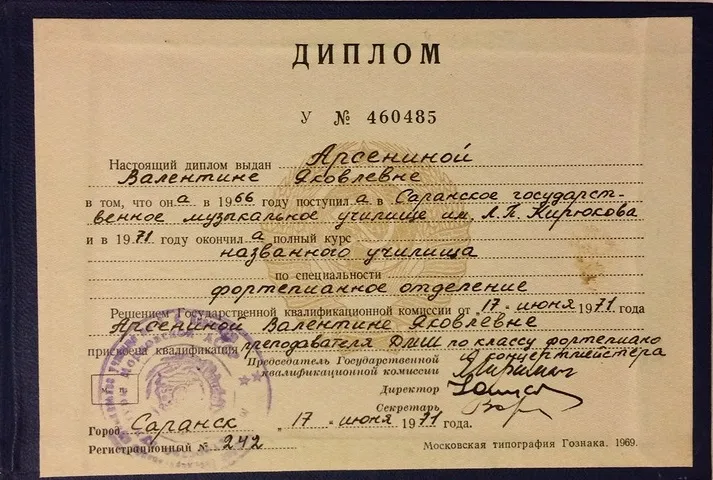 ДИПЛОМ
У № 460485
Настоящий диплом выдан Арсениной
Валентине Яковлевне
в том, что он а в 1966 году поступил а в Саранское государст-
венное музыкальное училище им. Л.П. Кирюкова
и в 1971 году окончил а полный курс
названного училища
по специальности
фортепианное отделение
Решением Государственной квалификационной комиссии от "17" июня 1971 года
Арсениной Валентине Яковлевне
присвоена квалификация преподавателя ДМШ по классу фортепиано
концертмейстера
Председатель Государственной
квалификационной комиссии
Директор
Секретарь
Город Саранск "17" июня 1971 года.
Регистрационный № 242
Московская типография Гознака. 1969.